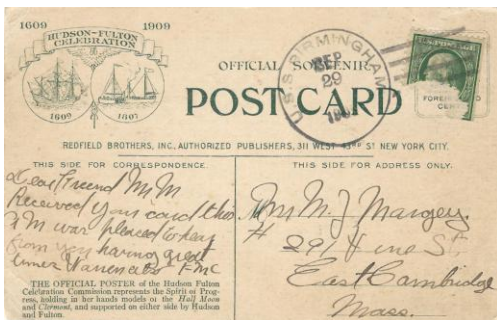 1609 1909
HUDSON-FULTON
CELEBRATION
1609 1807
OFFICIAL SOUVENIR
POST CARD
U.S.S. BIRMINGHAM
SEP
29
REDFIELD BROTHERS, INC. AUTHORIZED PUBLISHERS, 311 WEST 43RD ST NEW YORK CITY.
THIS SIDE FOR CORRESPONDENCE.
Dear Friend M M
Received your card this
P M was pleased to hear
from you having great
times F M C
THE OFFICIAL POSTER of the Hudson Fulton
Celebration Commission represents the Spirit of Prog-
ress, holding in her hands models of the Half Moon
and Clermont, and supported on either side by Hudson
and Fulton.
THIS SIDE FOR ADDRESS ONLY.
M. J.
291 St
East Cambridge
Mass.